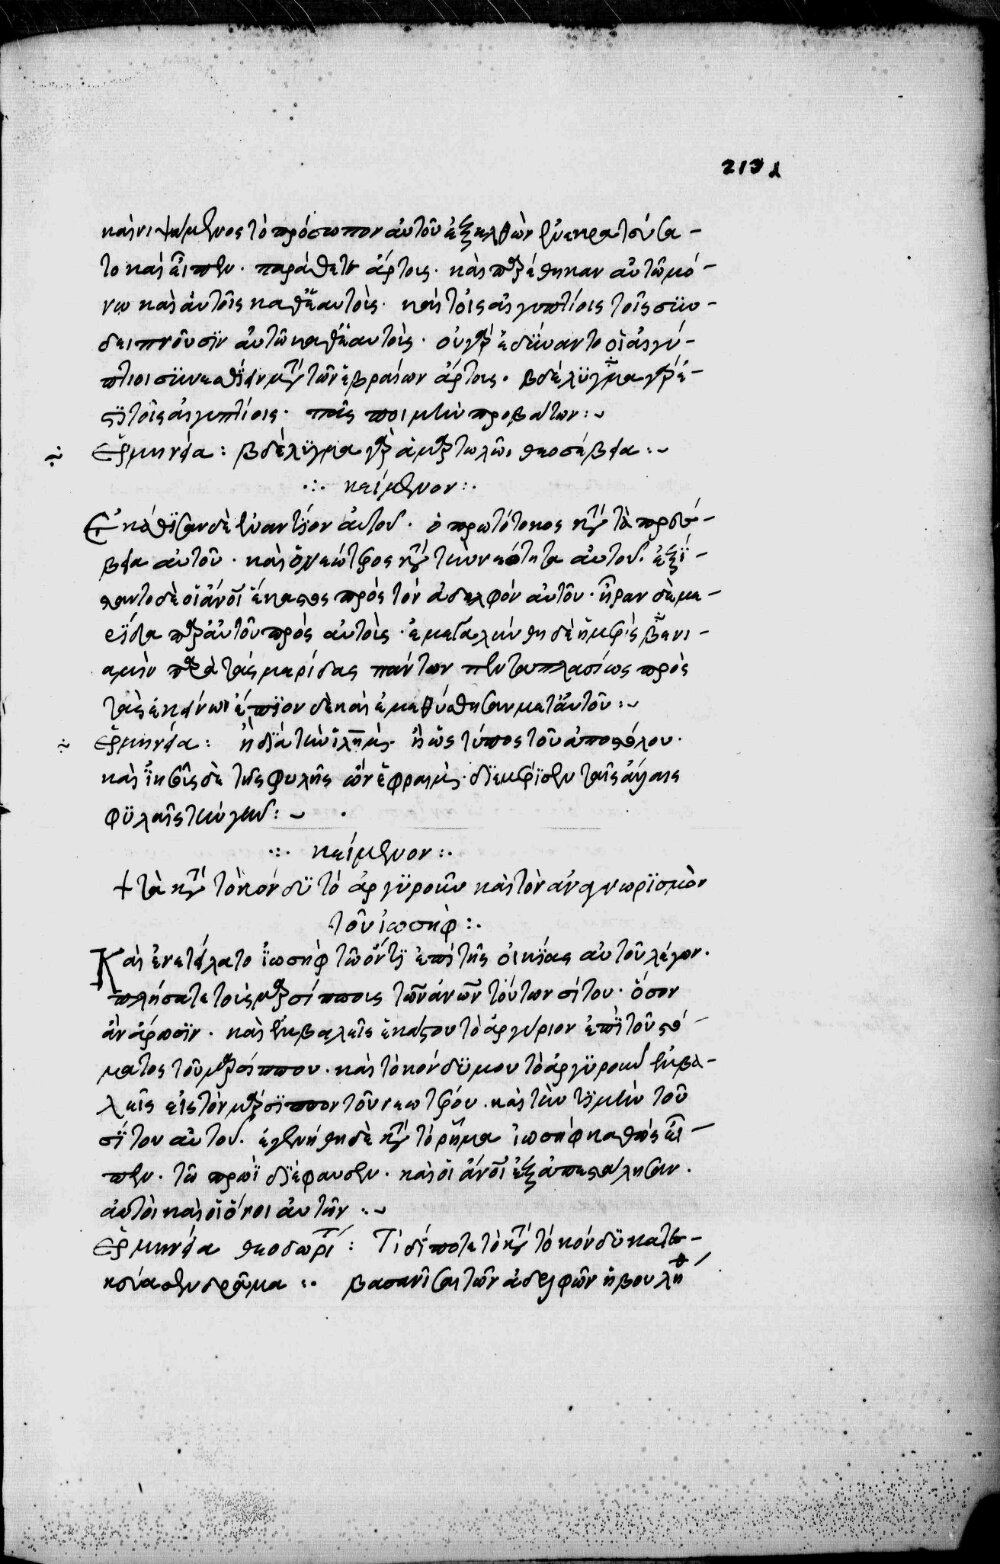 213
καὶ νιψάμενος τὸ πρόσωπον αὐτοῦ ἐξελθὼν ἐνεκρατεύσα-
το καὶ εἶπεν· παράθετε ἄρτους· καὶ παρέθηκαν αὐτῶ μό-
νω καὶ αὐτοῖς καθ' ἑαυτοὺς· καὶ τοῖς αἰγυπτίοις τοῖς συν-
δειπνοῦσϊν αὐτῶ καθ' ἑαυτοὺς· οὐ γὰρ ἐδΰναντο οἱ αἰγύ-
πτιοι συνεσθίειν μετὰ τῶν ἑβραίων ἄρτους· βδέλϋγμα γάρ ἐ-
στϊ τοῖς αἰγυπτίοις· πᾶς ποιμὴν προβάτων:~
ἑρμηνεία: βδέλϋγμα γὰρ ἁμαρτωλῶ θεοσέβεια:~
∴ κείμενον:·
Ἐκάθϊσαν δὲ ἐναντΐον αὐτοῦ· ὁ πρωτότοκος κατὰ τὰ πρεσ-
βεῖα αὐτοῦ· καὶ ὁ νεώτερος κατὰ τὴν νεότητα αὐτοῦ· ἐξΐ-
σταντο δὲ οἱ ἄνοι ἕκαστος πρὸς τὸν ἀδελφὸν αὐτοῦ· ἦραν δὲ με-
ρΐδα παρ' αὐτοῦ πρὸς αὐτοὺς· ἐμεγαλύνθη δὲ ἡ μερὶς βενι-
αμὶν παρὰ τὰς μερίδας πάντων πενταπλασίως πρὸς
τὰς ἐκείνων ἔπϊον δὲ καὶ ἐμεθύσθησαν μετ' αὐτοῦ:~
ἑρμηνεία: ἢ δϊὰ τὴν ἢ ὡς τύπος τοῦ ἀποστόλου·
καὶ δὲ τῆς φυλῆς ὢν ἐφραιμ· δϊεμέρϊσεν ταῖς ἁγίαις
φϋλαῖς τὴν γῆν:~ ·
∴ κείμενον:·
+ τὰ κατὰ τὸ κόνδϋ τὸ ἀργϋροῦν καὶ τὸν ἀναγνωρϊσμὸν
τοῦ ἰωσηφ:·
Καὶ ἐνετείλατο ἰωσὴφ τῶ ὄντϊ ἐπὶ τῆς οἰκΐας αὐτοῦ λέγων·
πλήσατε τοὺς μαρσίππους τῶν ἀνων τούτων σίτου· ὅσον
ἂν ἄρωσϊν· καὶ ἐμβαλεῖτε ἑκάστου τὸ ἀργύριον ἐπΐ τοῦ στό-
ματος τοῦ μαρσίππου· καὶ τὸ κόνδϋ μου τὸ ἀργϋροῦν ἐμβά-
λετε εἰς τὸν μάρσϊππον τοῦ νεωτέρου· καὶ τὴν τϊμὴν τοῦ
σΐτου αὐτοῦ· ἐγενήθη δὲ κατὰ τὸ ρῆμα ἰωσὴφ καθὼς εἶ-
πεν· τῶ πρωῒ δϊέφαυσεν· καὶ οἱ ἄνοι ἐξαπεστάλησαν·
αὐτοὶ καὶ οἱ ὄνοι αὐτῶν:~
ἑρμηνεία θεοδωρί: Τί δή ποτε τὸ κατὰ τὸ κόνδϋ κατε-
σκεύασεν δρᾶμα:· βασανῖσαι τῶν ἀδελφῶν ἠβουλήθη